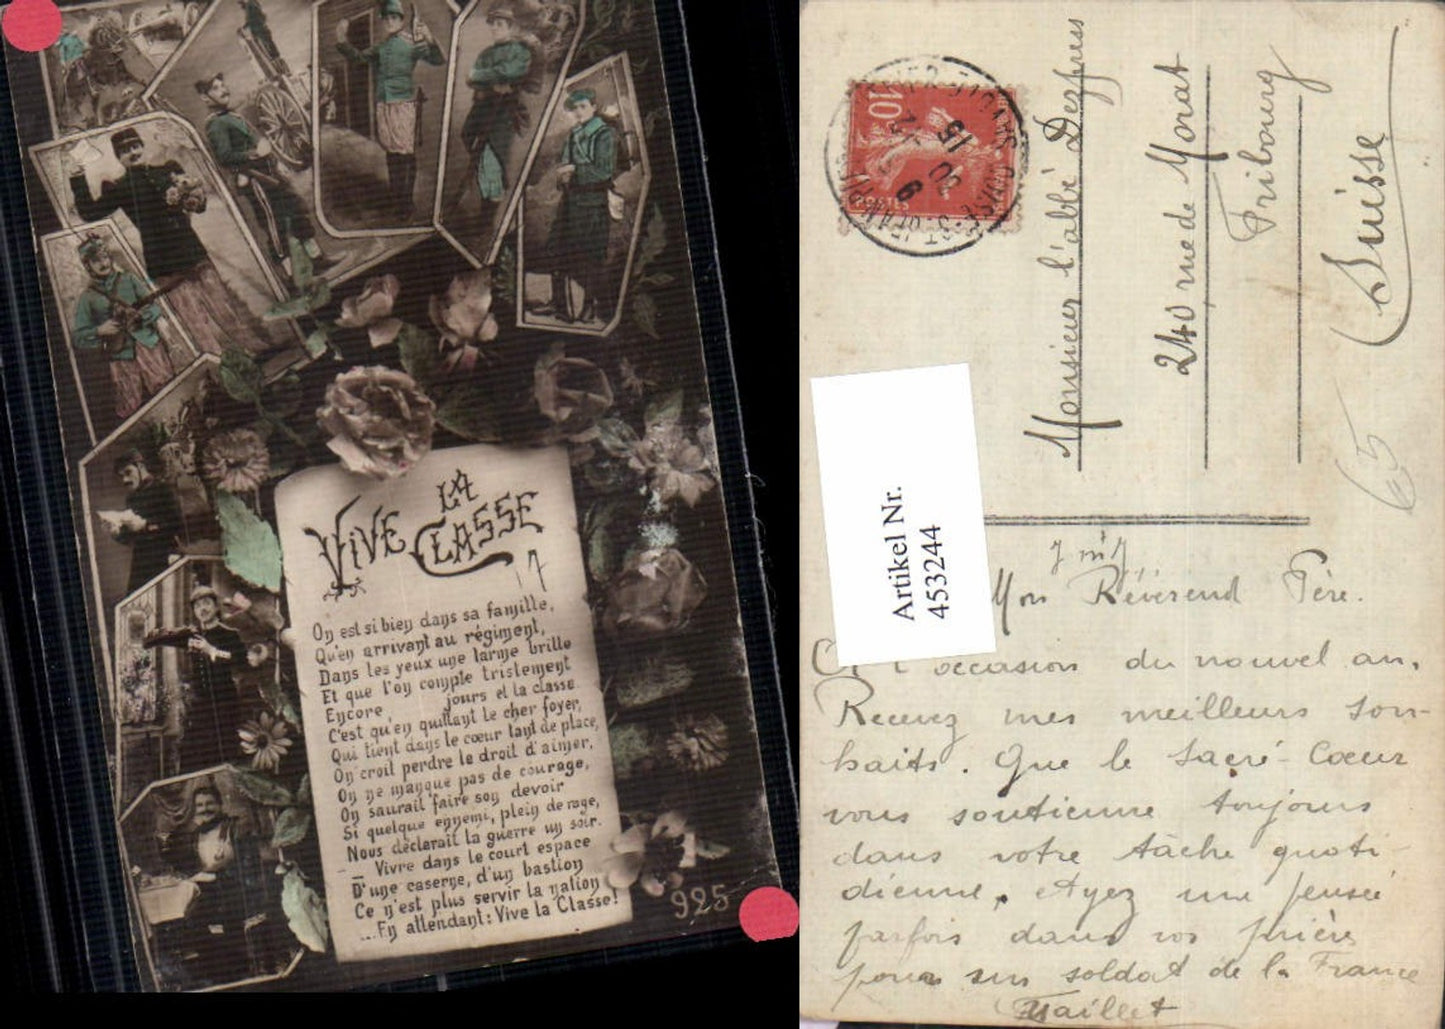 VIVE LA CLASSE
17
On est si bien dans sa famille,
Qu'en arrivant au régiment,
Dans les yeux une larme brille
Et que l'on compte tristement
Encore jours et la classe
C'est qu'en quittant le cher foyer,
Qui tient dans le cœur tant de place,
On croit perdre le droit d'aimer,
On ne manque pas de courage,
On saurait faire son devoir
Si quelque ennemi, plein de rage,
Nous déclarait la guerre un soir.
_ Vivre dans le court espace
D'une caserne, d'un bastion
Ce n'est plus servir la nation
...En attendant: Vive la Classe!
925
10
Monsieur l'abbé
240 rue de Morat
Fribourg
Suisse
65
Artikel Nr.
453244
Mon Révérend Père.
l'occasion du nouvel an,
Recevez mes meilleurs sou-
haits. Que le Sacré-Coeur
vous soutienne toujours
dans votre tâche quoti-
dienne, Ayez une pensée
parfois dans vos prières
pour un soldat de la France
Taillet